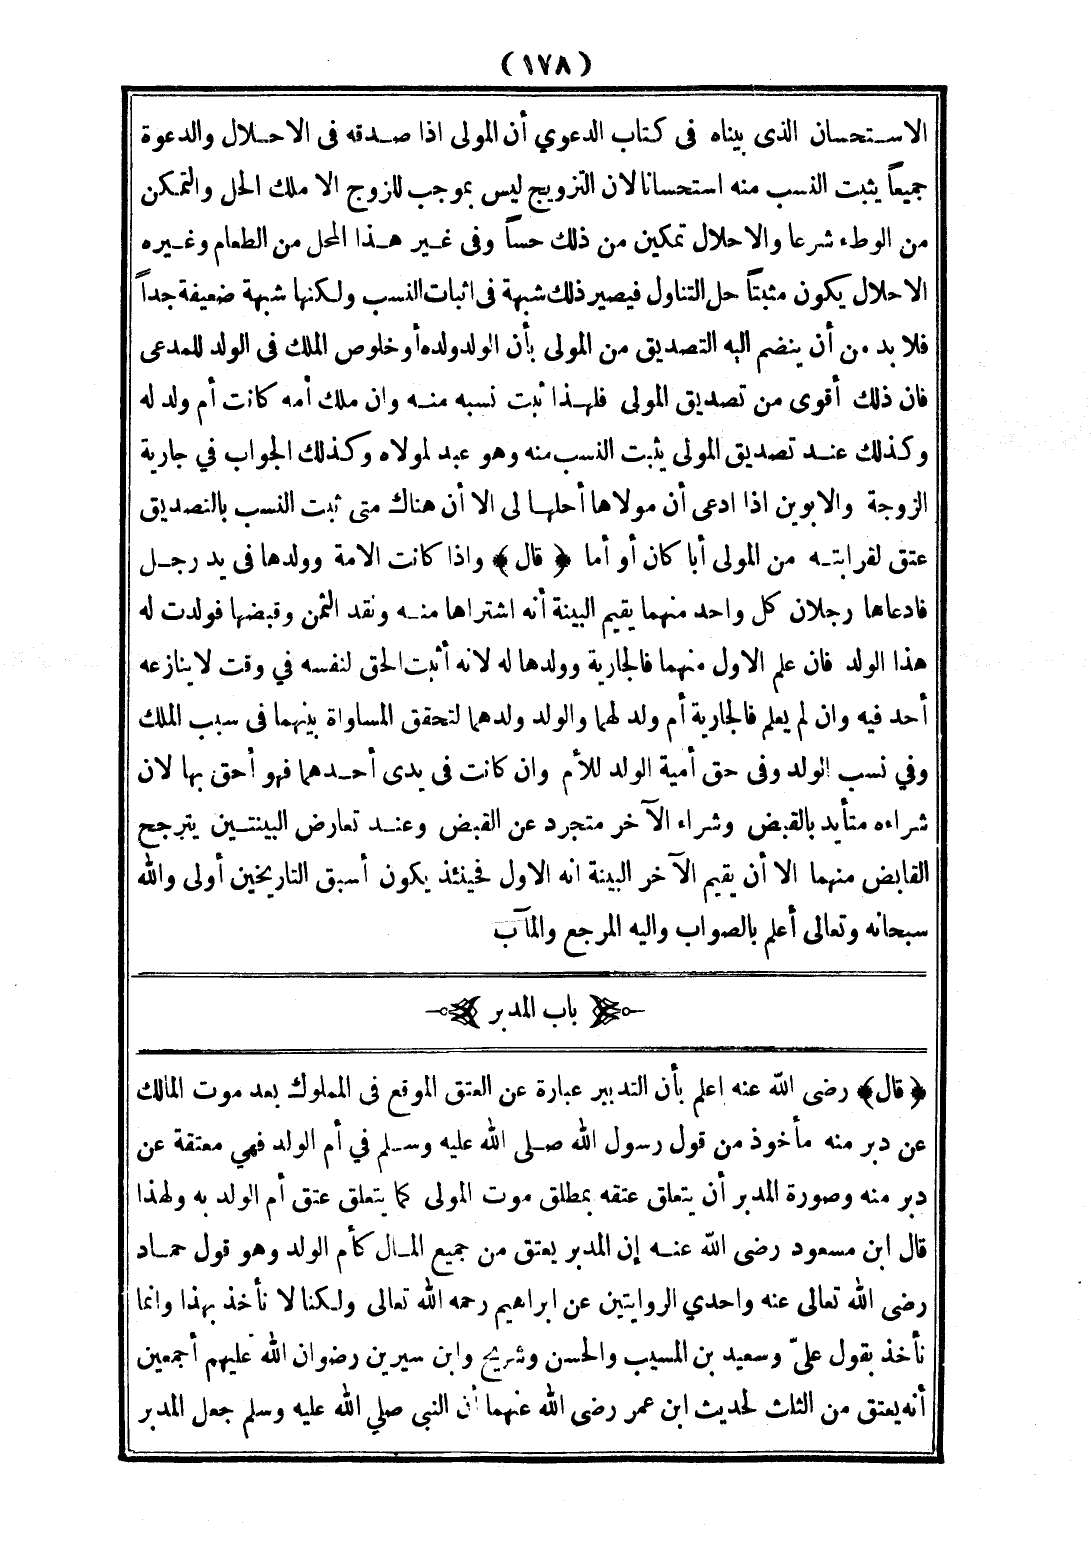 (١٧٨)
الاستحسان الذى بيناه فى كتاب الدعوي أن المولى اذا صدقه فى الاحلال والدعوة
جميعاً يثبت النسب منه استحسانا لان التزويج ليس بموجب للزوج الا ملك الحل والتمكن
من الوطء شرعا والاحلال تمكين من ذلك حساً وفى غير هذا المحل من الطعام وغيره
الاحلال يكون مثبتاً حل التناول فيصير ذلك شبهة فى اثبات النسب ولكنها شبهة ضعيفة جداً
فلا بد من أن ينضم اليه التصديق من المولى بأن الولد ولده أو خلوص الملك فى الولد للمدعى
فان ذلك أقوى من تصديق المولى فلهذا ثبت نسبه منه وان ملك أمه كانت أم ولد له
وكذلك عند تصديق المولى يثبت النسب منه وهو عبد لمولاه وكذلك الجواب في جارية
الزوجة والابوين اذا ادعى أن مولاها أحلها لى الا أن هناك متى ثبت النسب بالتصديق
عتق لقرابته من المولى أبا كان أو أما ﴿ قال ﴾ واذا كانت الامة وولدها فى يد رجل
فادعاها رجلان كل واحد منهما يقيم البينة أنه اشتراها منه ونقد الثمن وقبضها فولدت له
هذا الولد فان علم الاول منهما فالجارية وولدها له لانه أثبت الحق لنفسه في وقت لا ينازعه
أحد فيه وان لم يعلم فالجارية أم ولد لهما والولد ولدهما لتحقق المساواة بينهما فى سبب الملك
وفي نسب الولد وفى حق أمية الولد للأم وان كانت فى يدى أحدهما فهو أحق بها لان
شراءه متأيد بالقبض وشراء الآخر متجرد عن القبض وعند تعارض البينتين يترجح
القابض منهما الا أن يقيم الآخر البينة انه الاول فحينئذ يكون أسبق التاريخين أولى والله
سبحانه وتعالى أعلم بالصواب واليه المرجع والمآب
باب المدبر
﴿ قال ﴾ رضى الله عنه اعلم بأن التدبير عبارة عن العتق الموقع فى المملوك بعد موت المالك
عن دبر منه مأخوذ من قول رسول الله صلى الله عليه وسلم في أم الولد فهي معتقة عن
دبر منه وصورة المدبر أن يتعلق عتقه بمطلق موت المولى كما يتعلق عتق أم الولد به ولهذا
قال ابن مسعود رضى الله عنه إن المدبر يعتق من جميع المال كأم الولد وهو قول حماد
رضى الله تعالى عنه واحدي الروايتين عن ابراهيم رحمه الله تعالى ولكنا لا نأخذ بهذا وانما
نأخذ بقول علىّ وسعيد بن المسيب والحسن وشريح وابن سيرين رضوان الله عليهم أجمعين
أنه يعتق من الثلث لحديث ابن عمر رضى الله عنهما أن النبى صلي الله عليه وسلم جعل المدبر